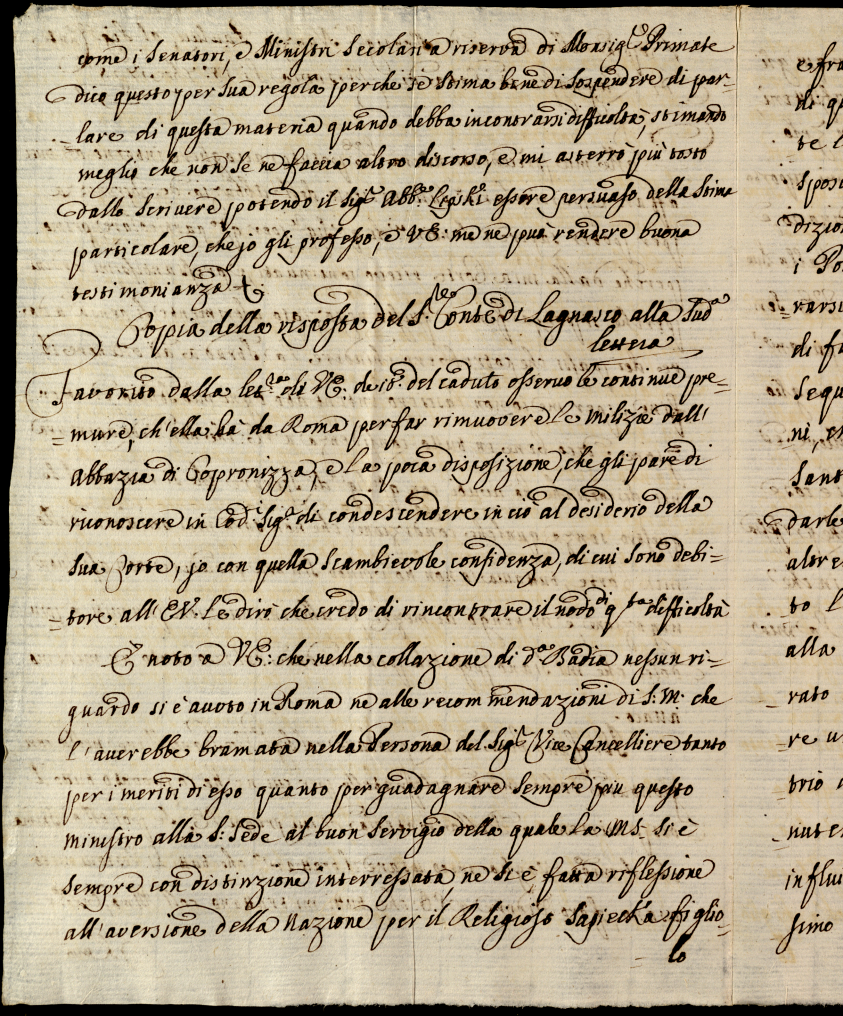 come i Senatori, e Ministri Secolari a riserva di Monsig.r Primate
dico questo per sua regola perche si stima bene di sospendere di par=
=lare di questa materia quando debba incontrarsi difficoltà, stimando
meglio che non se ne faccia altro discorso, e mi asterrò più tosto
dallo scrivere potendo il Sig.r Abb.e Lipski essere persuaso della stima
particolare, che jo gli professo, e VE: me ne puà rendere buona
testimonianza
Copia della risposta del S.r Conte di Lagnasco alla Sud.a
lettera
Favorito dalla let.ra di VE: de 18. del caduto osservo le continue pre=
=mure, ch'ella hà da Roma per far rimuovere le milizie dall'
Abbazia di Copronizza, e la poca disposizione, che gli pare di
riconoscere in Cod. Sig.ri di condescendere in ciò al desiderio della
sua Corte, jo con quella scambievole confidenza, di cui sono debi=
=tore all'EV. le dirò che credo di rincontrare il nodo di q.ta difficoltà
È noto a VE: che nella collazione di d.a Badia nessun ri=
guardo si è avuto in Roma ne alle recommendazioni di S: M: che
l'averebbe bramata nella Persona del Sig.r Vice Cancelliere tanto
per i meriti di esso quanto per guadagnare sempre piu questo
ministro alla S: Sede al buon servigio della quale la MS: si è
sempre con distinzione interressata, ne si è fatta riflessione
all'aversione della Nazione per il Religioso Sapiecha figlio=
=lo
e fra
di qu
te l
sposi
dizion
i Po
=rars
di fa
sequ
ni, e
Sant
darle
altre
to l
alla
rato
=re u
trio
nute
influi
simo